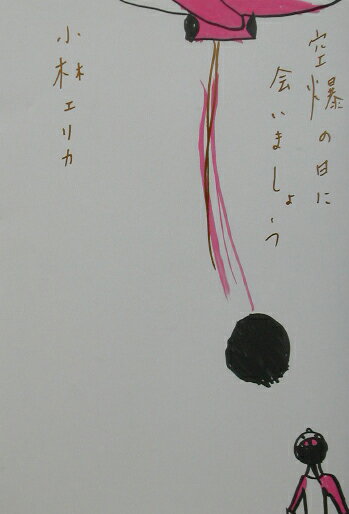 空爆の日に
会いましょう
小林エリカ